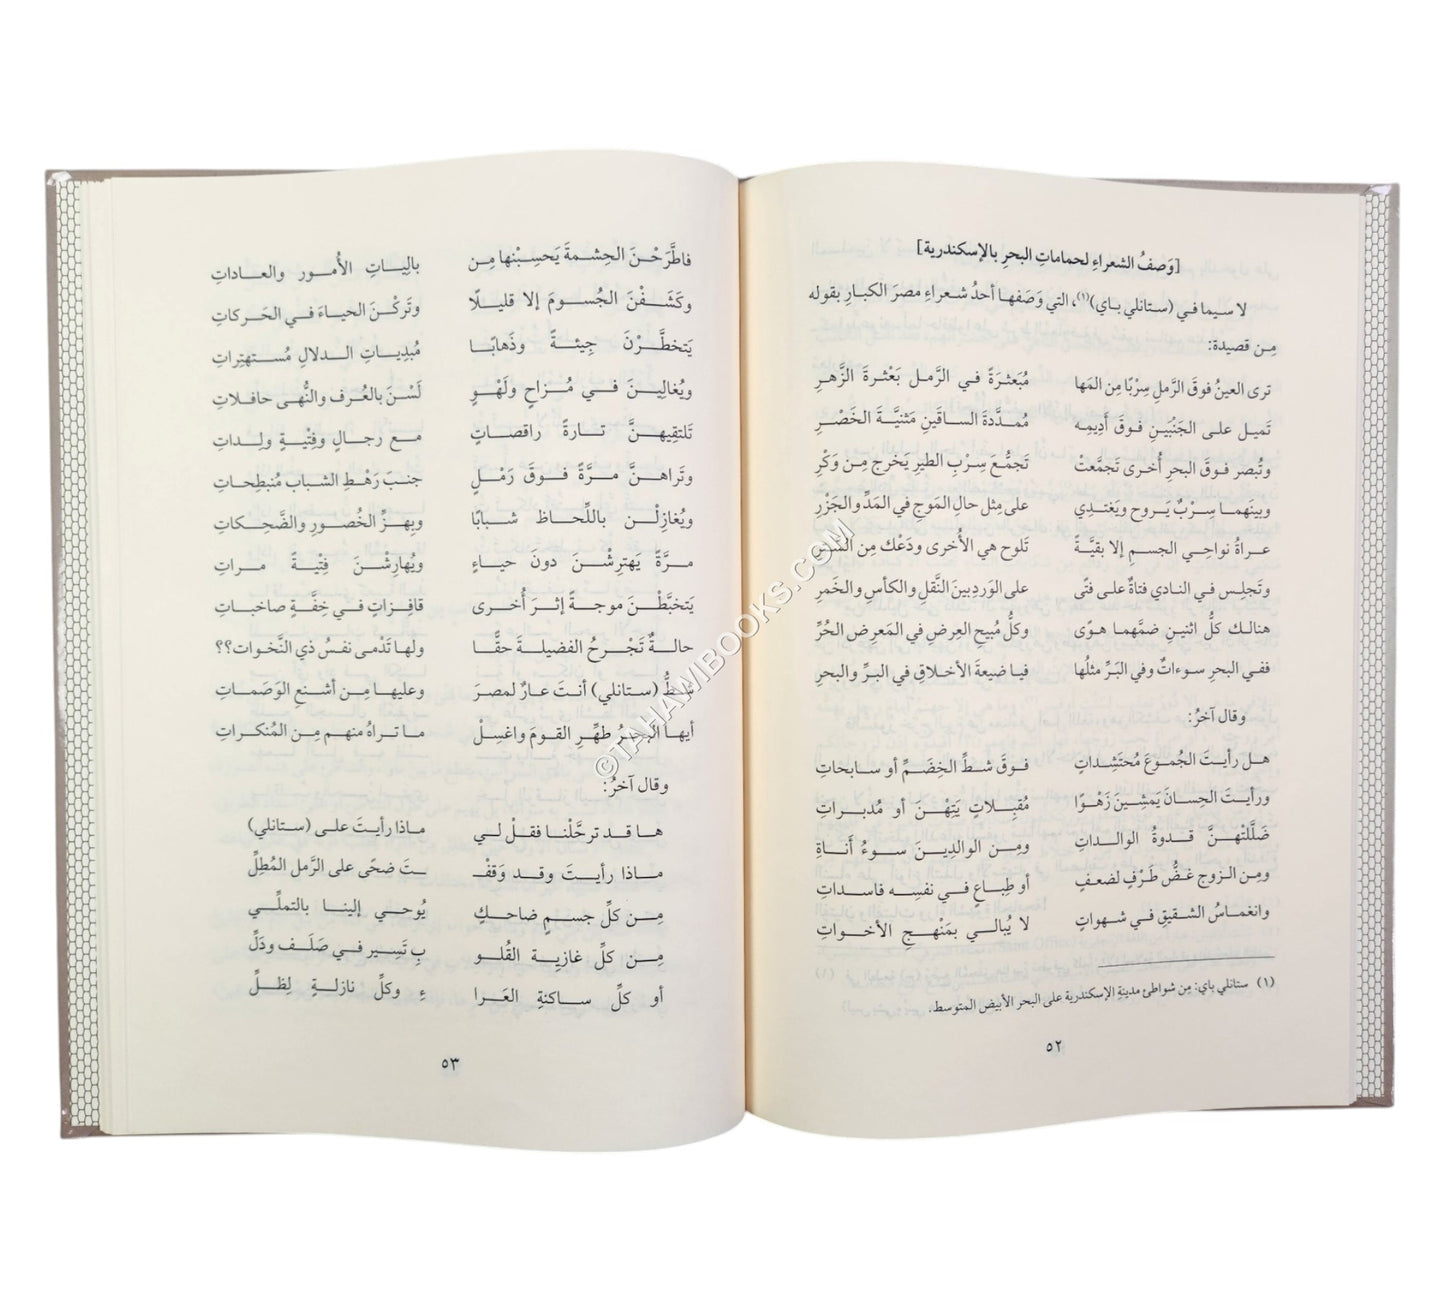 [وَصفُ الشعراءِ لحماماتِ البحرِ بالإسكندرية]
لا سيما في (ستانلي باي)(١)، التي وَصَفها أحدُ شعراءِ مصرَ الكبارِ بقوله
مِن قصيدة:
ترى العينُ فوقَ الرَّملِ سِرْبًا مِن المَها مُبَعثرَةً في الرَّمل بَعْثرةَ الزَّهرِ
تَميل على الجَنْبَينِ فوقَ أَدِيمِه مُمدَّدةَ الساقَين مَثنيَّةَ الخَصْرِ
وتُبصر فوقَ البحرِ أُخرى تَجمَّعتْ تَجمُّعَ سِرْبِ الطيرِ يَخرج مِن وَكْرِ
وبينَهما سِرْبٌ يَروح ويَغتدِي على مِثل حالِ المَوجِ في المَدِّ والجَزْرِ
عراةُ نواحِي الجسمِ إلا بقيَّةً تَلوح هي الأُخرى ودَعْك مِن السِّتْرِ
وتَجلِس في النادي فتاةٌ على فتًى على الوَردِ بينَ النَّقلِ والكأسِ والخَمرِ
هنالك كلُّ اثنينِ ضمَّهما هوًى وكلُّ مُبيحِ العِرضِ في المَعرِضِ الحُرِّ
ففي البحرِ سوءاتٌ وفي البَرِّ مثلُها فيا ضيعةَ الأخلاقِ في البرِّ والبحرِ
وقال آخرُ:
هل رأيتَ الجُموعَ مُحتَشِداتٍ فوقَ شطِّ الخِضَمِّ أو سابحاتِ
ورأيتَ الحِسانَ يَمشِينَ زَهْوًا مُقبِلاتٍ يَتِهْنَ أو مُدبراتِ
ضَلَّلتْهنَّ قدوةُ الوالداتِ ومِن الوالدِينَ سوءُ أَناةِ
ومِن الزوجِ غضُّ طَرْفٍ لضعفٍ أو طِباعٍ في نفسِه فاسداتِ
وانغماسُ الشقيقِ في شهواتٍ لا يُبالي بمَنْهجِ الأخواتِ
(١) ستانلي باي: مِن شواطئ مدينةِ الإسكندرية على البحر الأبيض المتوسط.
٥٢
فاطَّرَحْنَ الحِشمةَ يَحسِبْنها مِن بالِياتِ الأُمور والعاداتِ
وكَشَفْنَ الجُسومَ إلا قليلًا وتَركْنَ الحياءَ في الحَركاتِ
يَتخطَّرْنَ جِيئةً وذَهابًا مُبدِياتِ الدلالِ مُستهتِراتِ
ويُغالِينَ في مُزاحٍ ولَهْوٍ لَسْنَ بالعُرف والنُّهى حافلاتِ
تَلتقِيهنَّ تارةً راقصاتٍ مع رجالٍ وفِتْيةٍ ولِداتِ
وتَراهنَّ مرَّةً فوقَ رَمْلٍ جنبَ رَهْطِ الشباب مُنبطِحاتِ
ويُغازِلْن باللِّحاظ شبابًا وبِهزِّ الخُصورِ والضَّحِكاتِ
مرَّةً يَهترِشْنَ دونَ حياءٍ ويُهارِشْنَ فِتْيةً مراتِ
يَتخبَّطْنَ موجةً إثرَ أُخرى قافِزاتٍ في خِفَّةٍ صاخباتِ
حالةٌ تَجْرحُ الفضيلةَ حقًّا ولها تَدْمى نفسُ ذي النَّخوات؟؟
شطُّ (ستانلي) أنتَ عارٌ لمصرَ وعليها مِن أشنعِ الوَصَماتِ
أيها البحرُ طهِّرِ القومَ واغسِلْ ما تراهُ منهم مِن المُنكراتِ
وقال آخرُ:
ها قد ترحَّلْنا فقلْ لي ماذا رأيتَ على (ستانلي)
ماذا رأيتَ وقد وَقفْـ ـتَ ضحًى على الرَّمل المُطِلِّ
مِن كلِّ جسمٍ ضاحكٍ يُوحي إلينا بالتملِّي
مِن كلِّ غازيةِ القُلو بِ تَسِير في صَلَف ودَلِّ
أو كلِّ ساكنةِ العَرا ءِ وكلِّ نازلةٍ لِظلِّ
٥٣
©TAHAWIBOOKS.COM